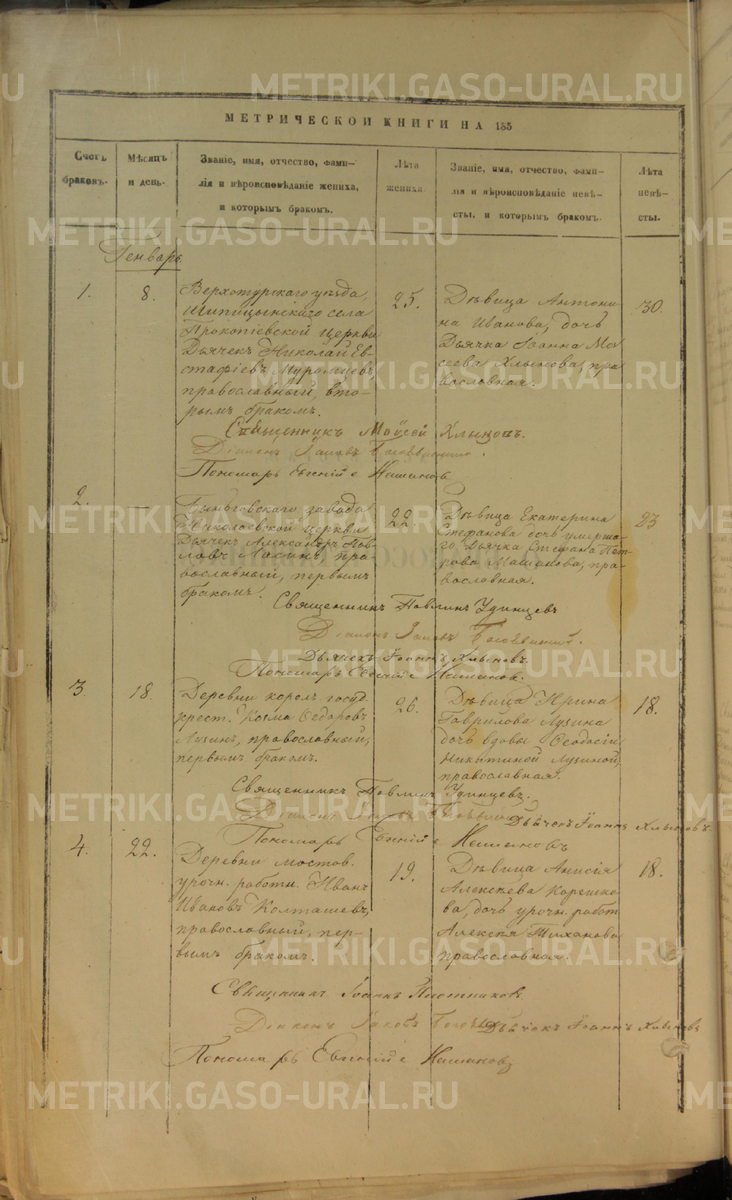 METRIKI.GASO-URAL.RU
МЕТРИЧЕСКОЙ КНИГИ НА 185
Счетъ браковъ.
Мѣсяцъ и день.
Званіе, имя, отчество, фами-
лія и вѣроисповѣданіе жениха,
и которымъ бракомъ.
Лѣта жениха
Званіе, имя, отчество, фами-
лія и вѣроисповѣданіе невѣ-
сты, и которымъ бракомъ.
Лѣта невѣ-
сты.
Генварь
1.
8.
Верхотурскаго уѣзда,
Шипицынскаго села
Прокопіевской церкви
Дьячекъ Николай Ев-
стафіевъ Муромцевъ
православный, вто-
рымъ бракомъ.
25.
Дѣвица Антони-
на Иванова, дочь
Дьячка Іоанна Мо-
сеева Хлынова, пра-
вославная.
30.
Священникъ Моисей Хлыновъ.
Діаконъ Іаковъ
Пономарь Евгеній
2.
—
завода
Николаевской церкви
Дьячекъ Александръ Пав-
ловъ пра-
вославный, первымъ
бракомъ.
22.
Дѣвица Екатерина
Стефанова дочь умерша-
го Дьячка Стефана Пет-
рова пра-
вославная.
23
Священникъ Павлинъ Удинцевъ
Діаконъ Іаковъ
Дьячекъ Іоаннъ Хлыновъ.
Пономарь Евгеній
3.
18.
Деревни корол. госуд.
крест. Козма Ѳедоровъ
Лузинъ, православный,
первымъ бракомъ.
26.
Дѣвица Ирина
Гаврилова Лузина
дочь вдовы Ѳеодосіи
Никитиной Лузиной,
православная.
18.
Священникъ Павлинъ Удинцевъ.
Діаконъ Іаковъ
Дьячекъ Іоаннъ Хлыновъ.
Пономарь Евгеній
4.
22.
Деревни Мостов.
урочн. работн. Иванъ
Ивановъ Колташевъ,
православный, пер-
вымъ бракомъ.
19.
Дѣвица Анисія
Алексѣева
дочь урочн. работ.
Алексѣя
православная.
18.
Священникъ Іоаннъ
Діаконъ Іаковъ
Дьячекъ Іоаннъ Хлыновъ
Пономарь Евгеній